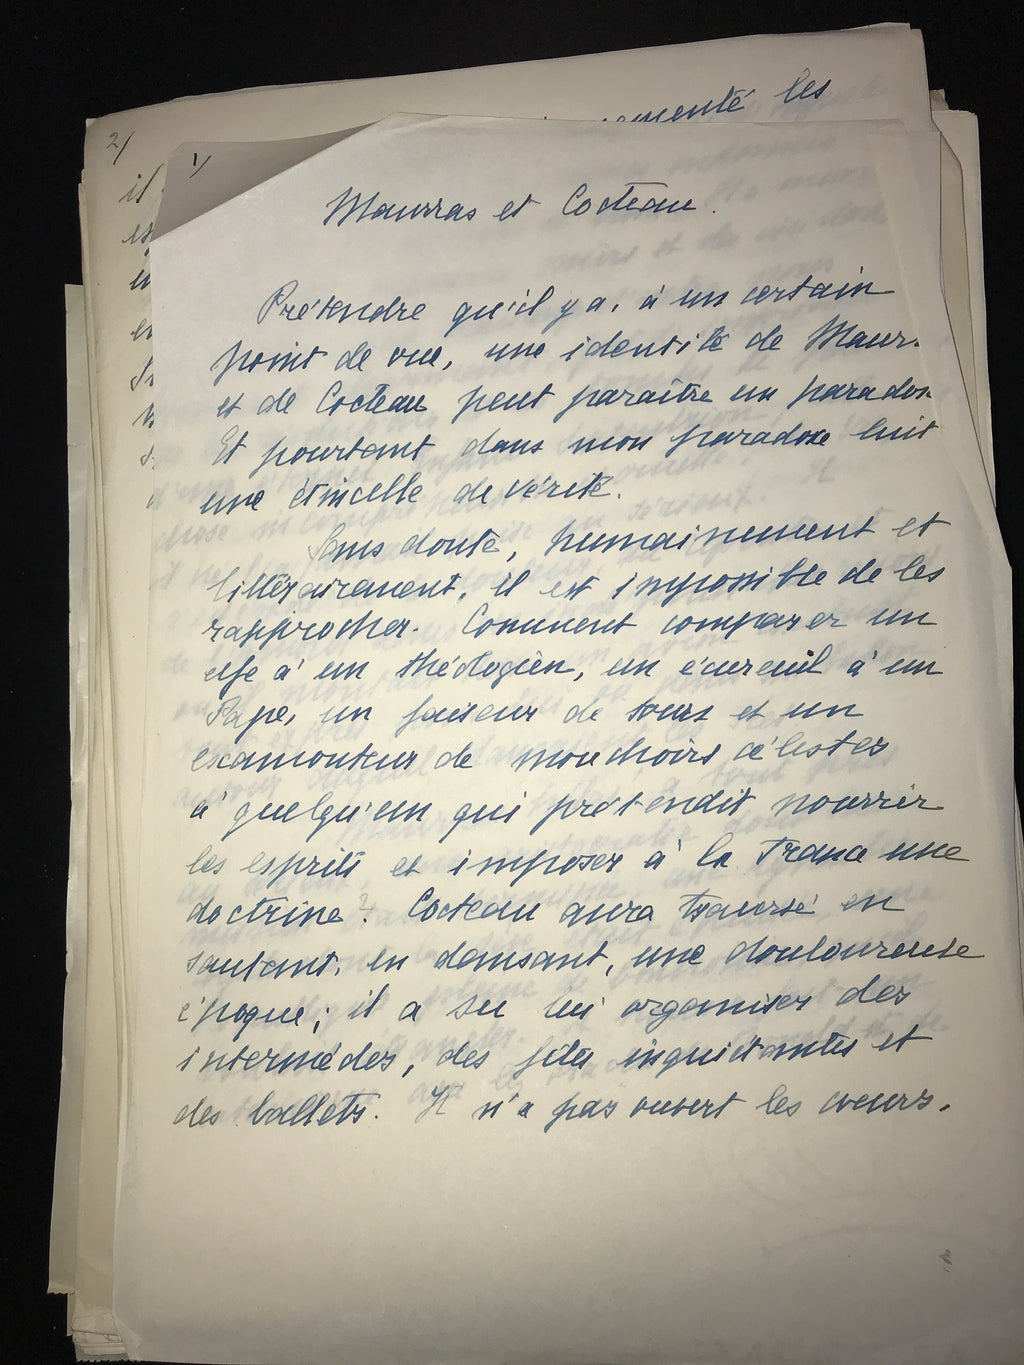 ementé les
2/
il
1/
Maurras et Cocteau.
Prétendre qu'il y a, à un certain
point de vue, une identité de Maur-
et de Cocteau peut paraître un parado
Et pourtant dans mon paradoxe luit
une étincelle de vérité.
Sans doute, humainement et
littérairement, il est impossible de les
rapprocher. Comment comparer un
elfe à un théologien, un écureuil à un
Pape, un faiseur de tours et un
escamoteur de mouchoirs célestes
à quelqu'un qui prétendit nourrir
les esprits et imposer à la France une
doctrine? Cocteau aura traversé en
sautant, en dansant, une douloureuse
époque; il a su lui organiser des
intermèdes, des fêtes inquiétantes et
des ballets. Il n'a pas ouvert les cœurs,